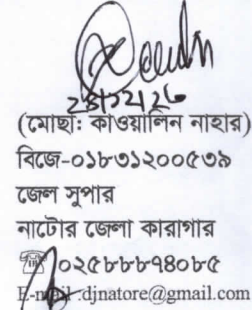 (মোছাঃ কাওয়ালিন নাহার)
বিজে-০১৮৩১২০০৫৩৯
জেল সুপার
নাটোর জেলা কারাগার
☎ ০২৫৮৮৮৭৪০৮৫
E-mail :djnatore@gmail.com